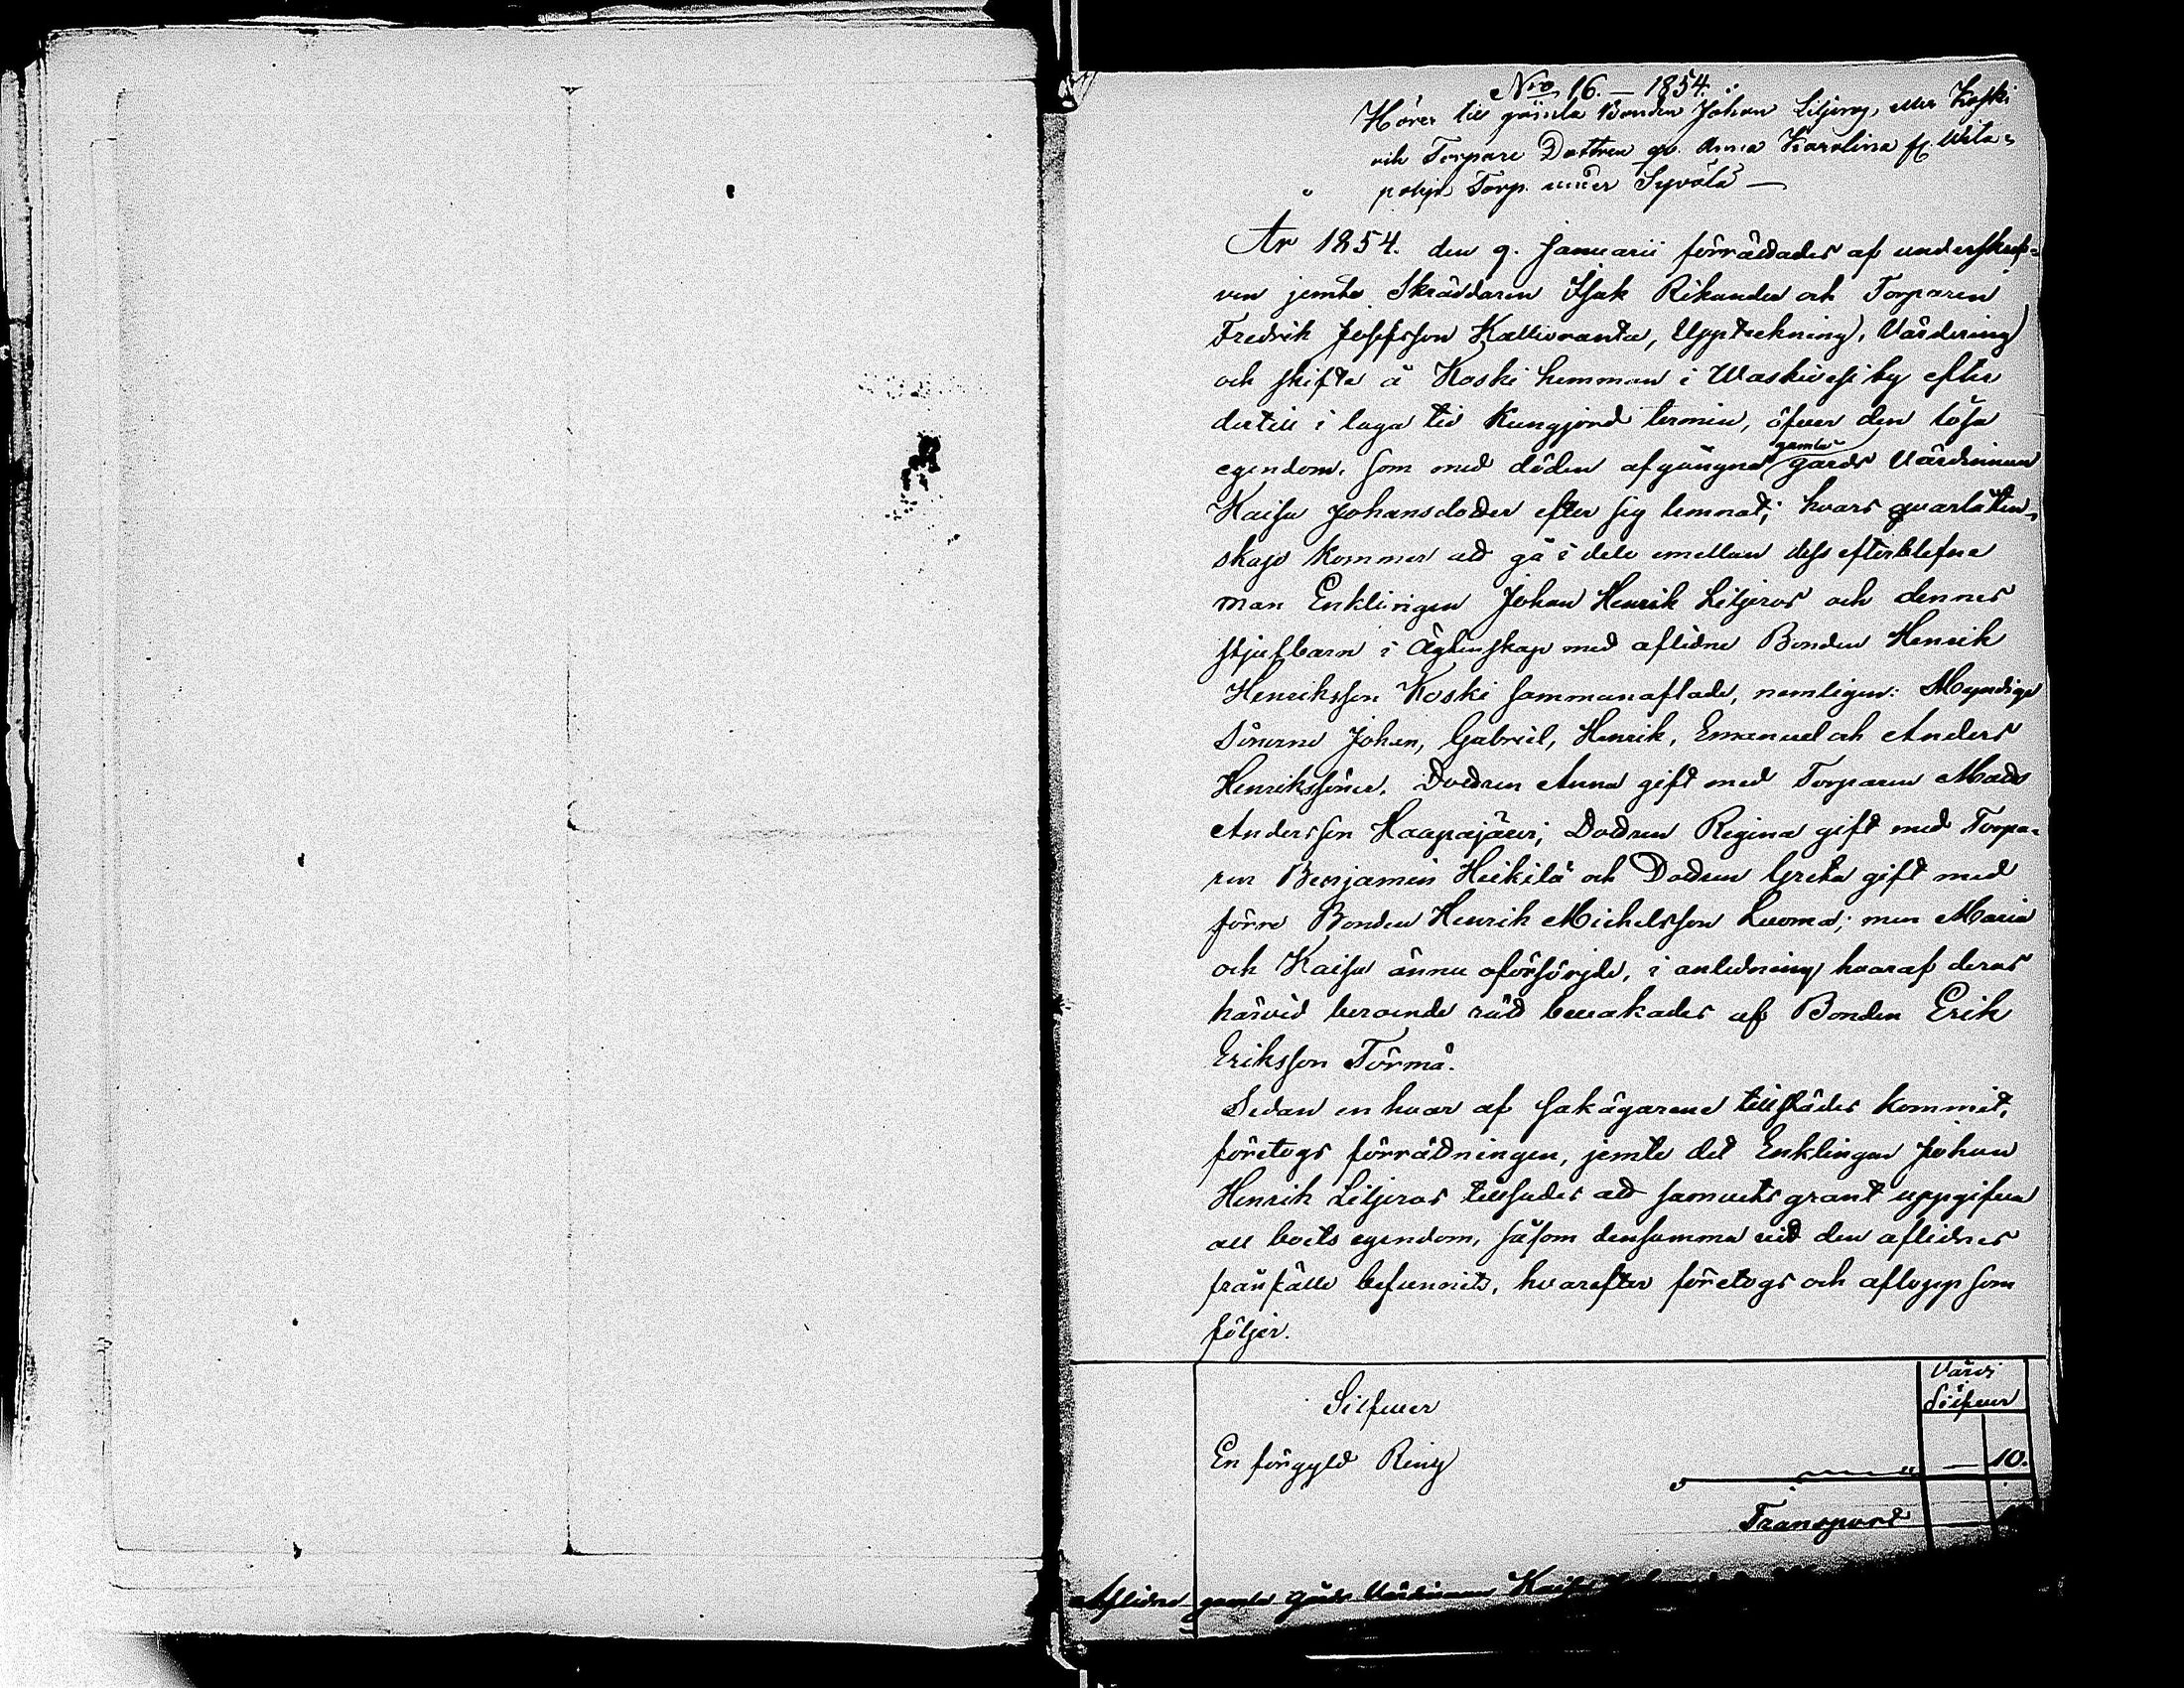 Nro 16. – 1854.
Hörer till gamla Bonden Johan Liljeros, eller Koski
och Torpare Dottren Anna Karolina
Torp. under Syvälä —
År 1854. den 9. Januarii förrättades af underskrif-
ven jemte Skräddaren Isak Rikander och Torparen
Fredrik Josefsson Kallioranta, Uppteckning, Värdering
och skifte å Koski hemman i Waskivesi by efter
dertill i laga tid Kungjord termin, öfver den lösa
egendom, som med döden afgångna gamla gårds Värdinnan
Kaisa Johansdotter efter sig lemnat; hvars qvarlåten-
skap kommer att gå i dele emellan dess efterblefne
man Enklingen Johan Henrik Liljeros och dennes
stjufbarn i Ägtenskap med aflidne Bonden Henrik
Henriksson Koski sammanaflade, nemligen: Myndige
Sönerne Johan, Gabriel, Henrik, Emanuel och Anders
Henrikssöner, Dottren Anna gift med Torparen Matts
Andersson Haapajärvi; Dottren Regina gift med Torpa-
ren Benjamin Heikilä och Dottren Greta gift med
förre Bonden Henrik Michelsson Luoma; men Maria
och Kaisa ännu oförsörjde, i anledning hvaraf deras
härvid beroende rätt bevakades af Bonden Erik
Eriksson Törmä.
Sedan en hvar af sakägarene tillstädes kommit,
företogs förrättningen, jemte det Enklingen Johan
Henrik Liljeros tillsades att samvetsgrant uppgifva
all boets egendom, såsom densamma vid den aflidnes
frånfälle befunnits, hvarefter företogs och aflopp som
följer.
Värde
Silfver
Silfver
En förgyld Ring — 10.
Transport
Aflidne gamla gårds Värdinnan Kaisa